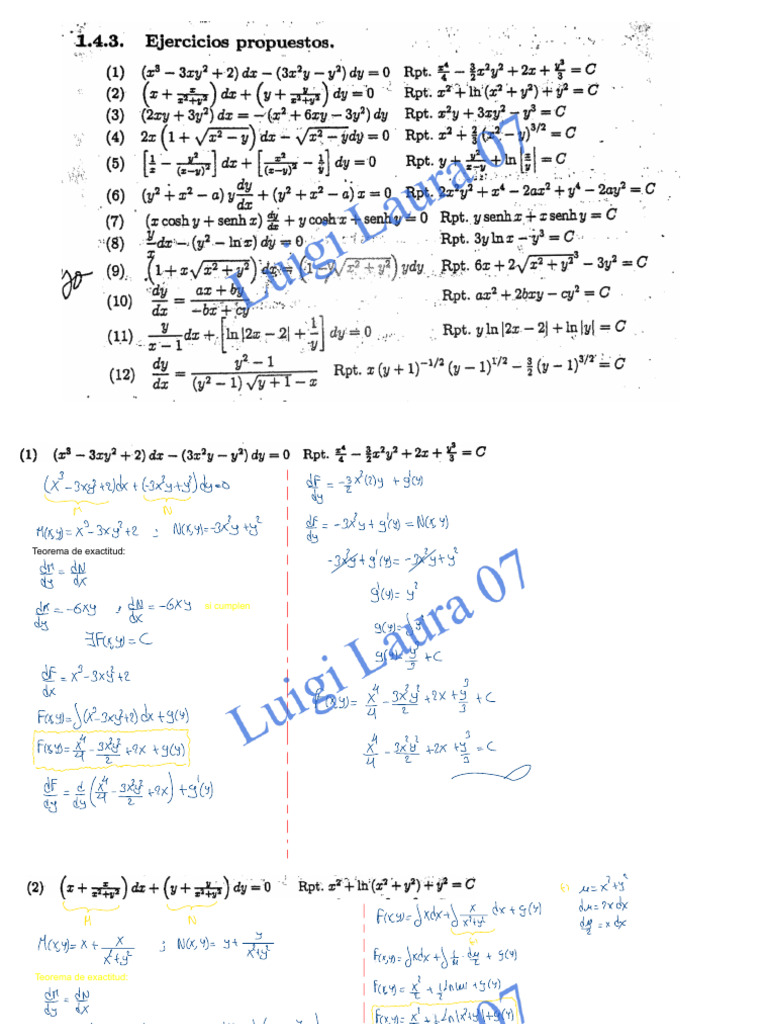 1.4.3. Ejercicios propuestos.
(1) (x³ − 3xy² + 2) dx − (3x²y − y²) dy = 0 Rpt. x⁴/4 − 3/2 x²y² + 2x + y³/3 = C
(2) (x + x/(x²+y²)) dx + (y + y/(x²+y²)) dy = 0 Rpt. x² + ln (x² + y²) + y² = C
(3) (2xy + 3y²) dx = −(x² + 6xy − 3y²) dy Rpt. x²y + 3xy² − y³ = C
(4) 2x (1 + √(x² − y)) dx − √(x² − y) dy = 0 Rpt. x² + 2/3 (x² − y)^(3/2) = C
(5) [1/x − y²/(x−y)²] dx + [x²/(x−y)² − 1/y] dy = 0 Rpt. y + y²/(x−y) + ln |x/y| = C
(6) (y² + x² − a) y dy/dx + (y² + x² − a) x = 0 Rpt. 2x²y² + x⁴ − 2ax² + y⁴ − 2ay² = C
(7) (x cosh y + senh x) dy/dx + y cosh x + senh y = 0 Rpt. y senh x + x senh y = C
(8) y/x dx − (y² − ln x) dy = 0 Rpt. 3y ln x − y³ = C
(9) (1 + x√(x² + y²)) dx = (1 − √(x² + y²)) y dy Rpt. 6x + 2√(x² + y²)³ − 3y² = C
(10) dy/dx = (ax + by)/(−bx + cy) Rpt. ax² + 2bxy − cy² = C
(11) y/(x − 1) dx + [ln |2x − 2| + 1/y] dy = 0 Rpt. y ln |2x − 2| + ln |y| = C
(12) dy/dx = (y² − 1)/((y² − 1) √(y + 1) − x) Rpt. x (y + 1)^(−1/2) (y − 1)^(1/2) − 2/3 (y − 1)^(3/2) = C
Luigi Laura 07
(1) (x³ − 3xy² + 2) dx − (3x²y − y²) dy = 0 Rpt. x⁴/4 − 3/2 x²y² + 2x + y³/3 = C
(x³ − 3xy² + 2) dx + (−3x²y + y²) dy = 0
M N
M(x,y) = x³ − 3xy² + 2 ; N(x,y) = −3x²y + y²
Teorema de exactitud:
dM/dy = dN/dx
dM/dy = −6xy , dN/dx = −6xy si cumplen
∃F(x,y) = C
dF/dx = x³ − 3xy² + 2
F(x,y) = ∫(x³ − 3xy² + 2) dx + g(y)
F(x,y) = x⁴/4 − 3x²y²/2 + 2x + g(y)
dF/dy = d/dy (x⁴/4 − 3x²y²/2 + 2x) + g'(y)
dF/dy = −3/2 x²(2)y + g'(y)
dF/dy = −3x²y + g'(y) = N(x,y)
−3x²y + g'(y) = −3x²y + y²
g'(y) = y²
g(y) = ∫y²
g(y) = y³/3 + C
F(x,y) = x⁴/4 − 3x²y²/2 + 2x + y³/3 + C
x⁴/4 − 3x²y²/2 + 2x + y³/3 = C
Luigi Laura 07
(2) (x + x/(x²+y²)) dx + (y + y/(x²+y²)) dy = 0 Rpt. x² + ln (x² + y²) + y² = C
M N
M(x,y) = x + x/(x²+y²) ; N(x,y) = y + y/(x²+y²)
Teorema de exactitud:
dM/dy = dN/dx
F(x,y) = ∫x dx + ∫ x/(x²+y²) dx + g(y)
F(x,y) = ∫x dx + ∫ 1/u · du/2 + g(y)
F(x,y) = x²/2 + 1/2 ln|u| + g(y)
F(x,y) = x²/2 + 1/2 ln|x²+y²| + g(y)
u = x² + y²
du = 2x dx
du/2 = x dx